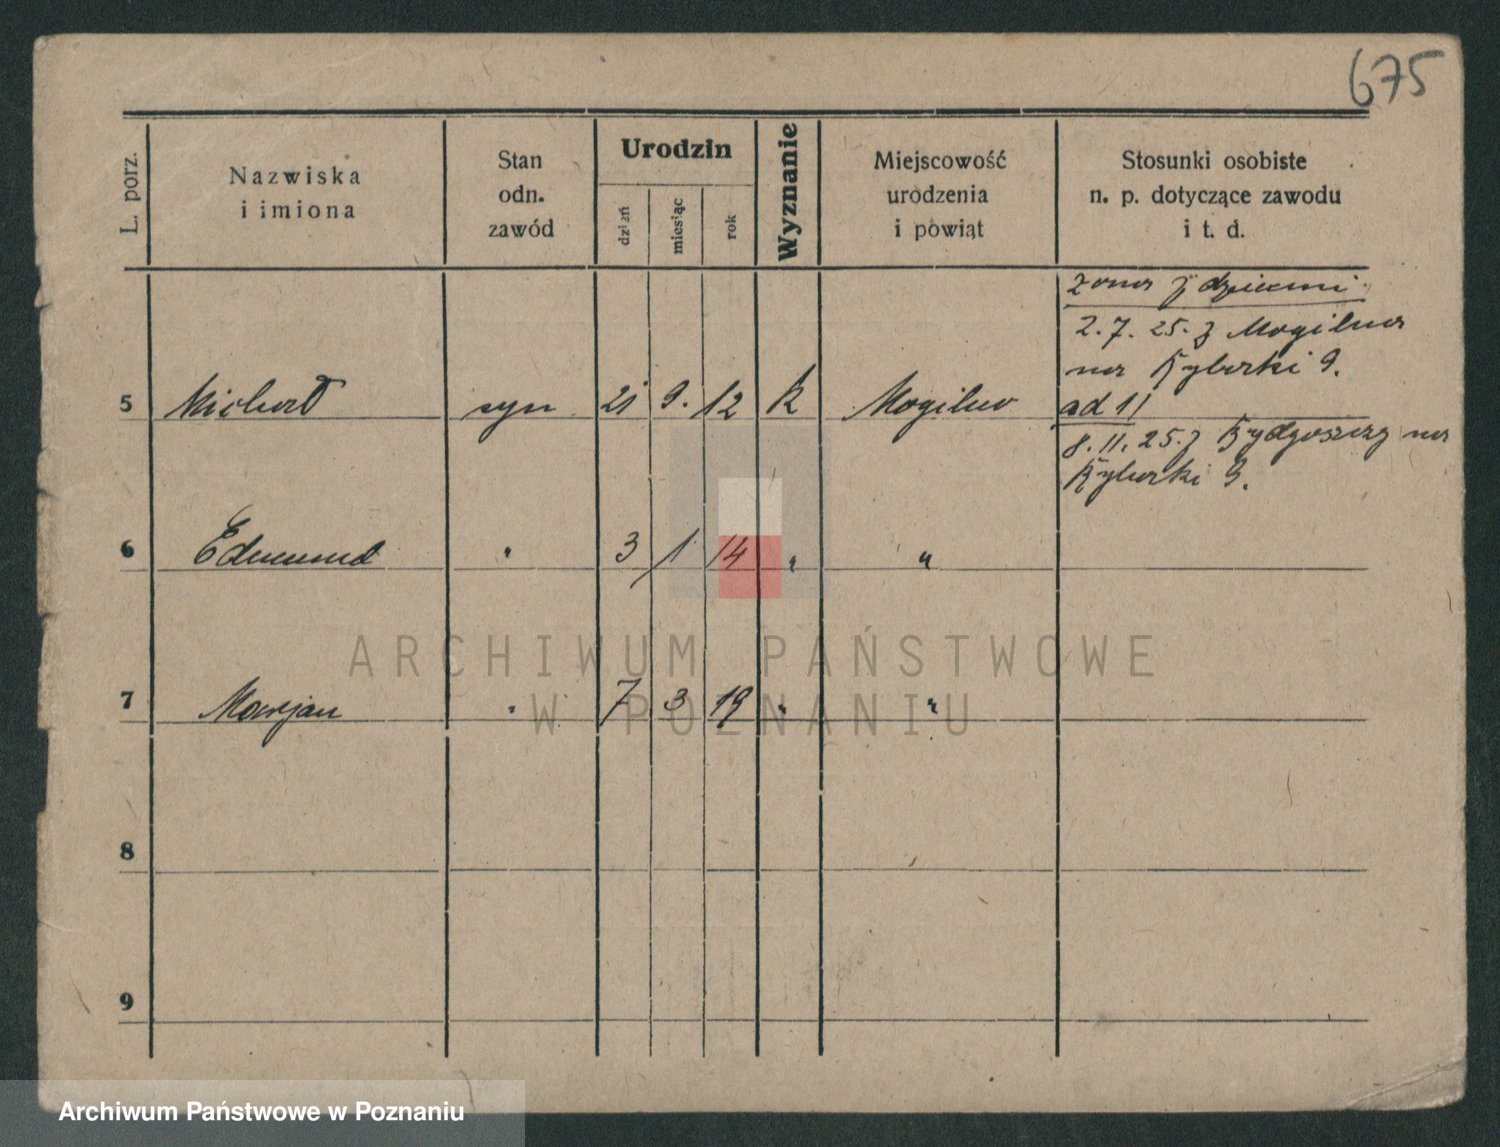 675
L. porz.
Nazwiska
i imiona
Stan
odn.
zawód
Urodzin
dzień
miesiąc
rok
Wyznanie
Miejscowość
urodzenia
i powiąt
Stosunki osobiste
n. p. dotyczące zawodu
i t. d.
żona z dziećmi
2.7.25. z Mogilna
na Rybaki 9.
5 Michał syn 21 9. 12 k Mogilno ad 1/
8.11.25. z Bydgoszczy na
Rybaki 9.
6 Edmund " 3 1 14 " "
7 Marjan " 7 3 19 " "
8
9
ARCHIWUM PAŃSTWOWE
W POZNANIU
Archiwum Państwowe w Poznaniu